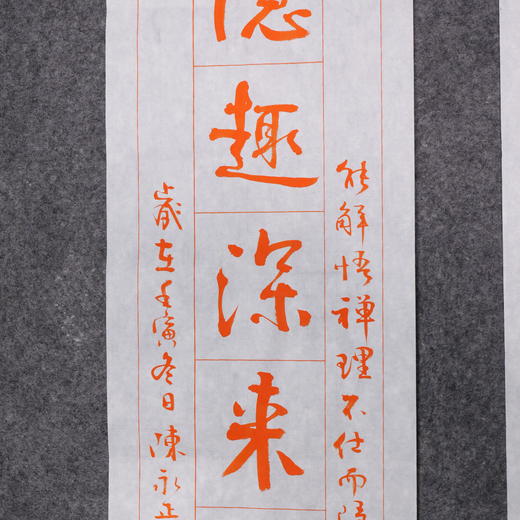 能解悟禅理不仕而隐
隐趣深来
歲在壬寅冬日陳永正